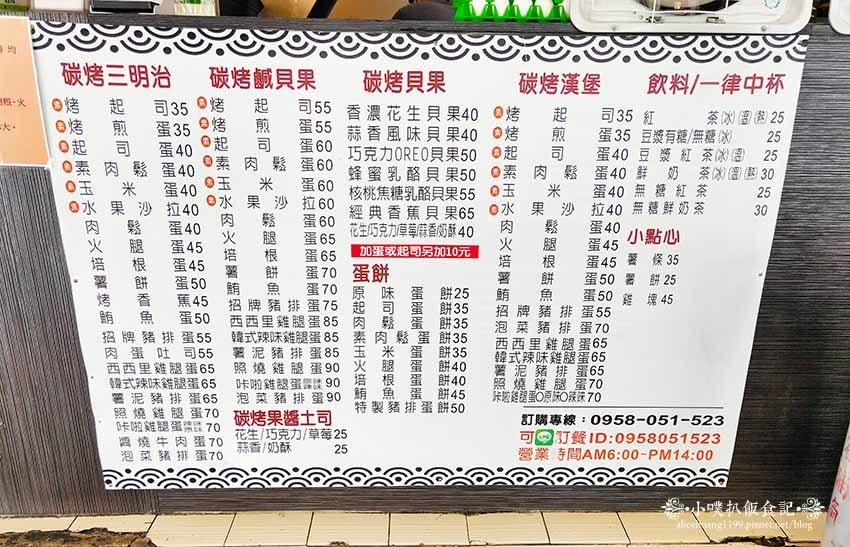 碳烤三明治
素 烤起司35
素 烤煎蛋35
素 起司蛋40
素 素肉鬆蛋40
素 玉米蛋40
素 水果沙拉40
肉鬆蛋40
火腿蛋45
培根蛋45
薯餅蛋50
烤香蕉45
鮪魚蛋50
招牌豬排蛋55
肉蛋吐司55
西西里雞腿蛋65
韓式辣味雞腿蛋65
薯泥豬排蛋65
照燒雞蛋70
咔啦雞腿蛋原味辣味70
醬燒牛肉蛋70
泡菜豬排蛋70
碳烤鹹貝果
素 烤起司55
素 烤煎蛋55
素 起司蛋60
素 素肉鬆蛋60
素 玉米蛋60
素 水果沙拉60
肉鬆蛋60
火腿蛋65
培根蛋65
薯餅蛋70
鮪魚蛋70
招牌豬排蛋75
西西里雞腿蛋85
韓式辣味雞腿蛋85
薯泥豬排蛋85
照燒雞蛋90
咔啦雞腿蛋原味辣味90
泡菜豬排蛋90
碳烤果醬土司
花生/巧克力/草莓25
蒜香/奶酥25
碳烤貝果
香濃花生貝果40
蒜香風味貝果40
巧克力OREO貝果50
蜂蜜乳酪貝果50
核桃焦糖乳酪貝果55
經典香蕉貝果65
花生/巧克力/草莓/蒜香/奶酥40
加蛋或起司另加10元
蛋餅
原味蛋餅25
起司蛋餅35
肉鬆蛋餅35
素肉鬆蛋餅35
玉米蛋餅35
火腿蛋餅40
培根蛋餅40
鮪魚蛋餅45
特製豬排蛋餅50
碳烤漢堡
素 烤起司35
素 烤煎蛋35
素 起司蛋40
素 素肉鬆蛋40
素 玉米蛋40
素 水果沙拉40
肉鬆蛋40
火腿蛋45
培根蛋45
薯餅蛋50
鮪魚蛋50
招牌豬排蛋55
泡菜豬排蛋70
西西里雞腿蛋65
韓式辣味雞腿蛋65
薯泥豬排蛋65
照燒雞蛋70
咔啦雞腿蛋O原味O辣味70
飲料/一律中杯
紅茶(冰)(溫)(熱)25
豆漿有糖/無糖(冰)25
豆漿紅茶(冰)(溫)25
鮮奶茶(冰)(溫)(熱)30
無糖紅茶25
無糖鮮奶茶30
小點心
薯條35
薯餅25
雞塊45
訂購專線：0958-051-523
可LINE訂餐ID:0958051523
營業時間AM6:00-PM14:00
小噗扒飯食記
alicehuang1199.pixnet.net/blog